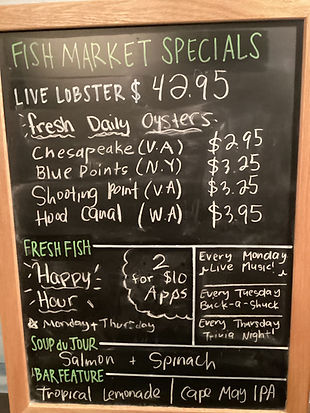 FISH MARKET SPECIALS
LIVE LOBSTER $ 42.95
fresh Daily Oysters.
Chesapeake (V.A) $2.95
Blue Points (N.Y) $3.25
Shooting Point (VA) $3.25
Hood Canal (W.A) $3.95
FRESH FISH
Happy
Hour
Monday + Thursday
2
for $10
Apps
Every Monday
Live Music!
Every Tuesday
Buck-a-Shuck
Every Thursday
Trivia Night!
SOUP du JOUR
Salmon + Spinach
BAR FEATURE
Tropical Lemonade | Cape May IPA